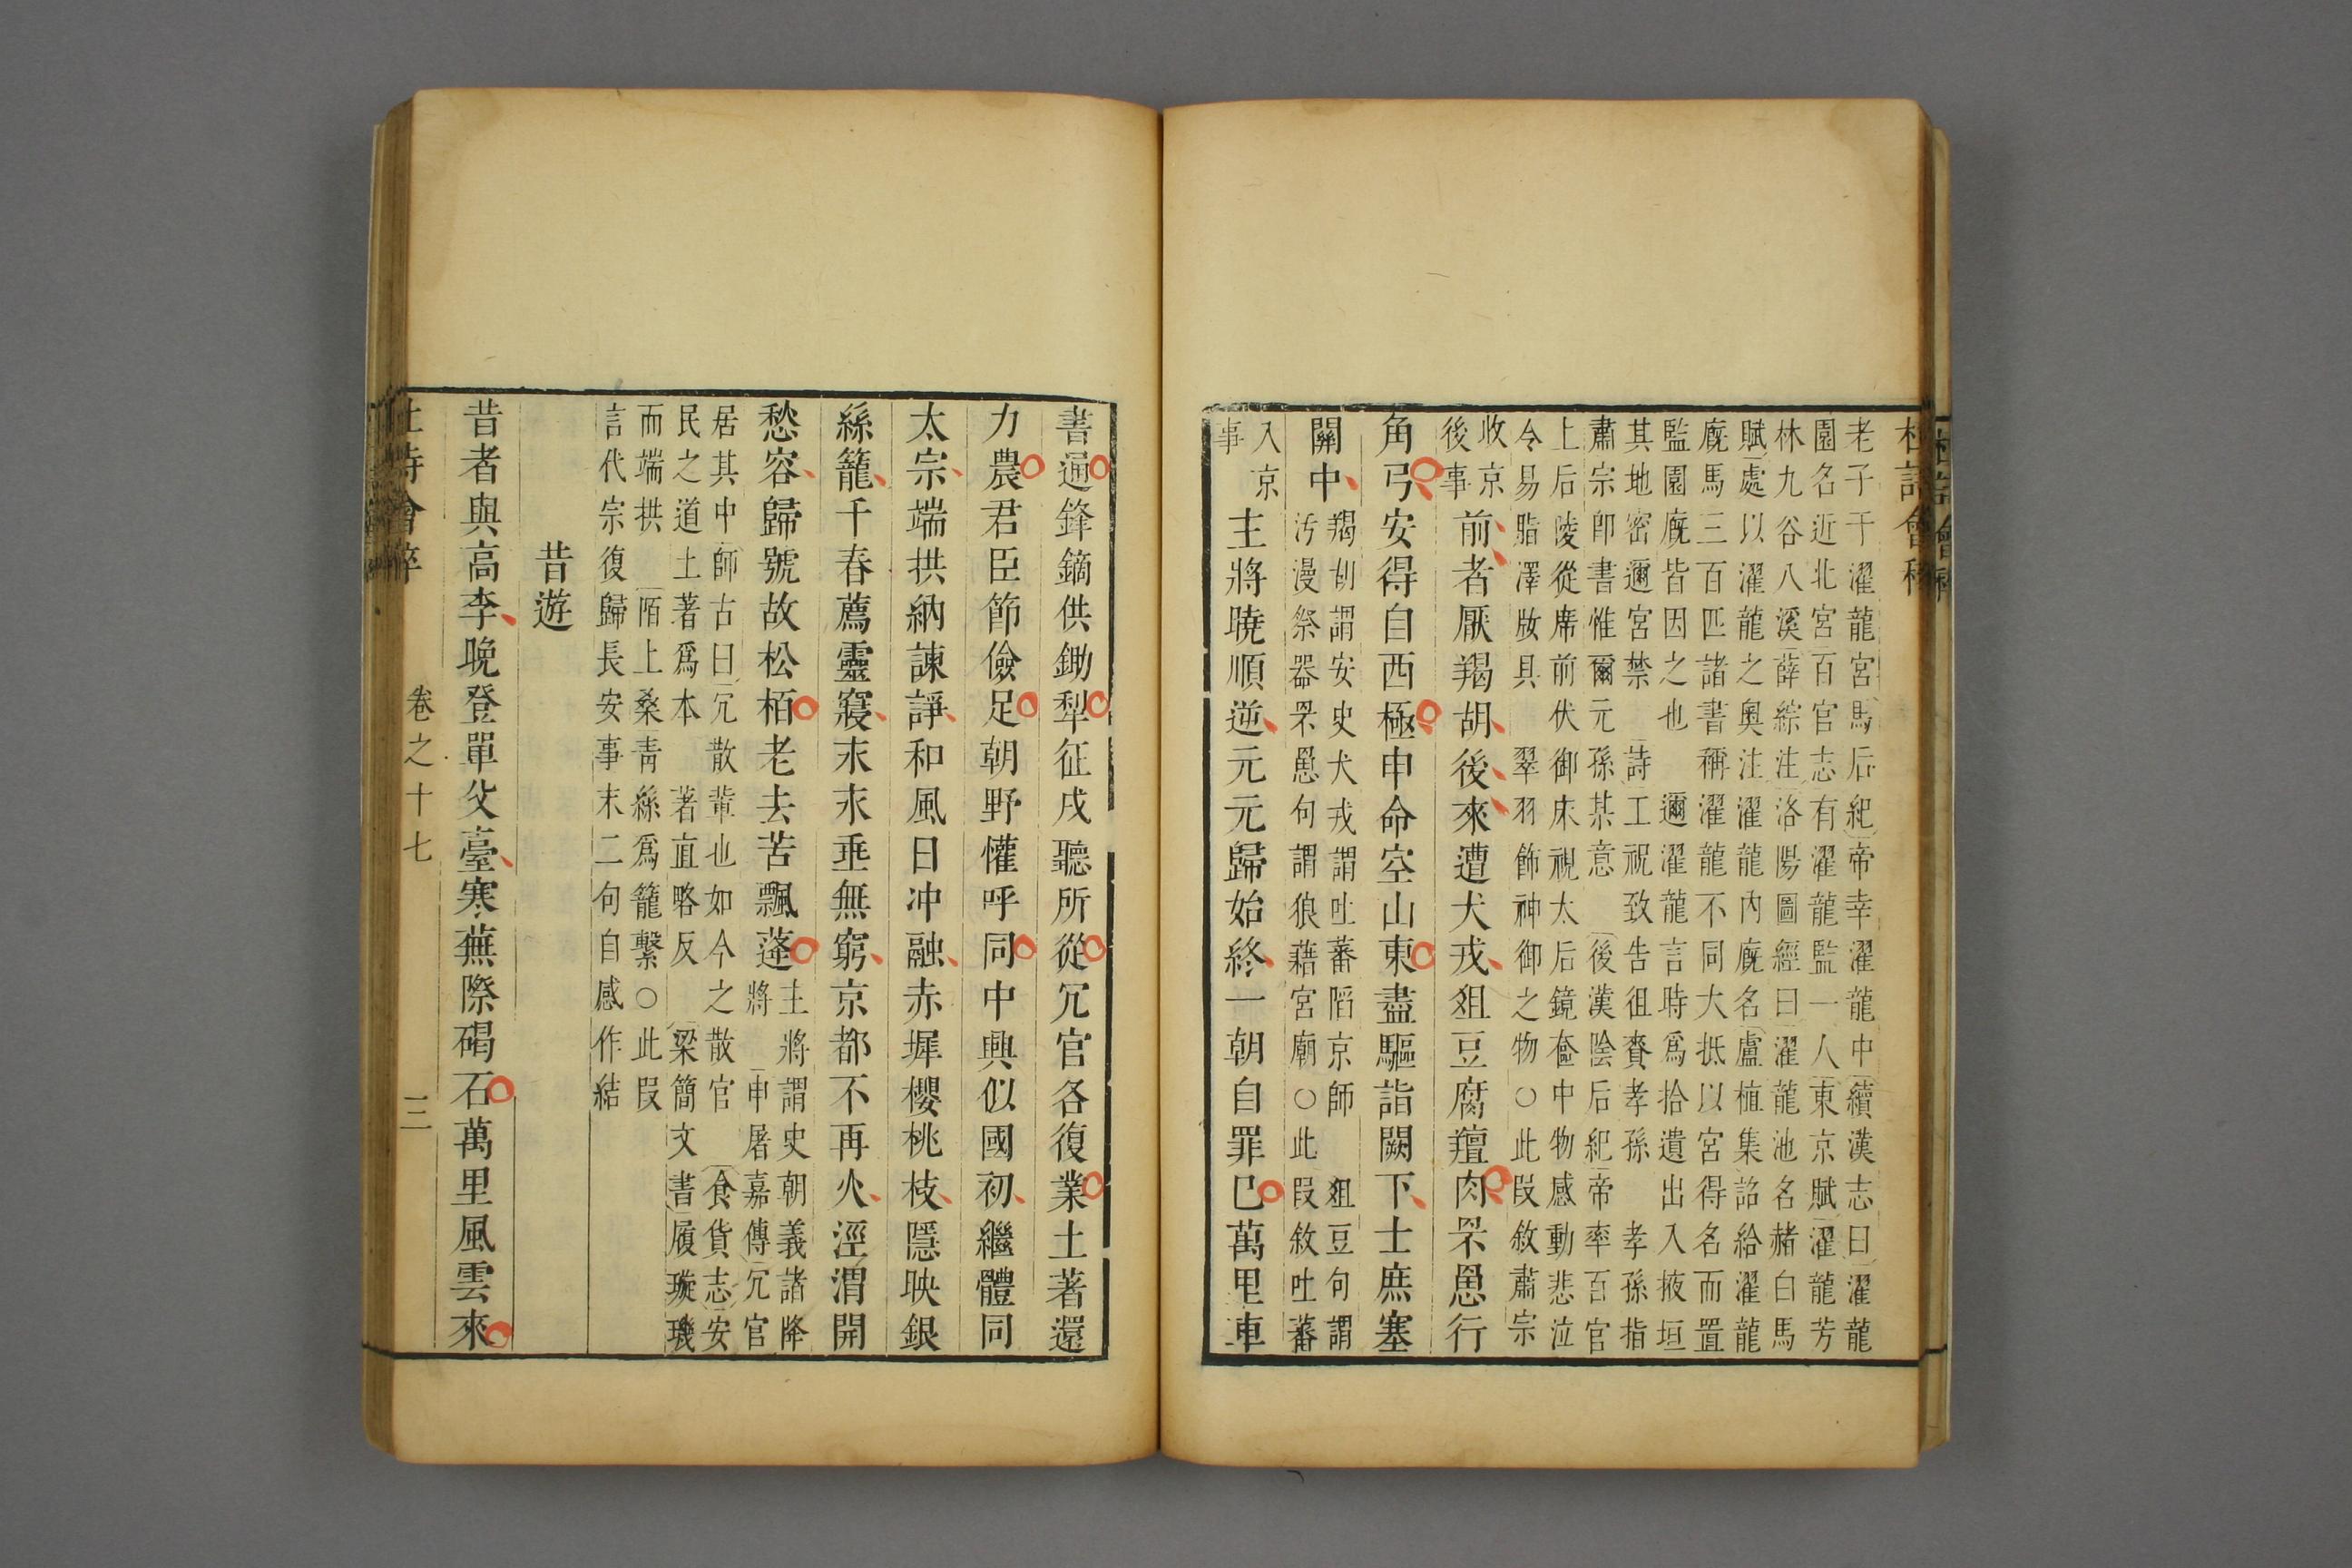 杜詩會稡
老子于濯龍宮馬后紀帝幸濯龍中續漢志曰濯龍
園名近北宮百官志有濯龍監一人東京賦濯龍芳
林九谷八溪薛綜注洛陽圖經曰濯龍池名赭白馬
賦處以濯龍之奧注濯龍內廐名盧植集詔給濯龍
廐馬三百匹諸書稱濯龍不同大抵以宮得名而置
監園廐皆因之也 邇濯龍言時爲拾遺出入掖垣
其地密邇宮禁 詩工祝致告徂賚孝孫 孝孫指
肅宗卽書惟爾元孫某意 後漢陰后紀帝率百官
上后陵從席前伏御床視太后鏡奩中物感動悲泣
令易脂澤妝具 翠羽飾神御之物○此段敘肅宗
收京
後事
前者厭羯胡後來遭犬戎俎豆腐羶肉罘罳行
角弓安得自西極申命空山東盡驅詣闕下士庶塞
關中
羯胡謂安史犬戎謂吐蕃陷京師 俎豆句謂
汚漫祭器罘罳句謂狼藉宮廟○此段敘吐蕃
入京
事
主將曉順逆元元歸始終一朝自罪已萬里車
書通鋒鏑供鋤犁征戍聽所從冗官各復業土著還
力農君臣節儉足朝野懽呼同中興似國初繼體同
太宗端拱納諫諍和風日冲融赤墀櫻桃枝隱映銀
絲籠千春薦靈寢永永垂無窮京都不再火涇渭開
愁容歸號故松栢老去苦飄蓬
主將謂史朝義諸降
將 申屠嘉傳冗官
居其中師古曰冗散輩也如今之散官 食貨志安
民之道土著爲本 著直略反 梁簡文書履璇璣
而端拱 陌上桑靑絲爲籠繫○此段
言代宗復歸長安事末二句自感作結
昔遊
昔者與高李晚登單父臺寒蕪際碣石萬里風雲來
杜詩會稡
卷之十七
三